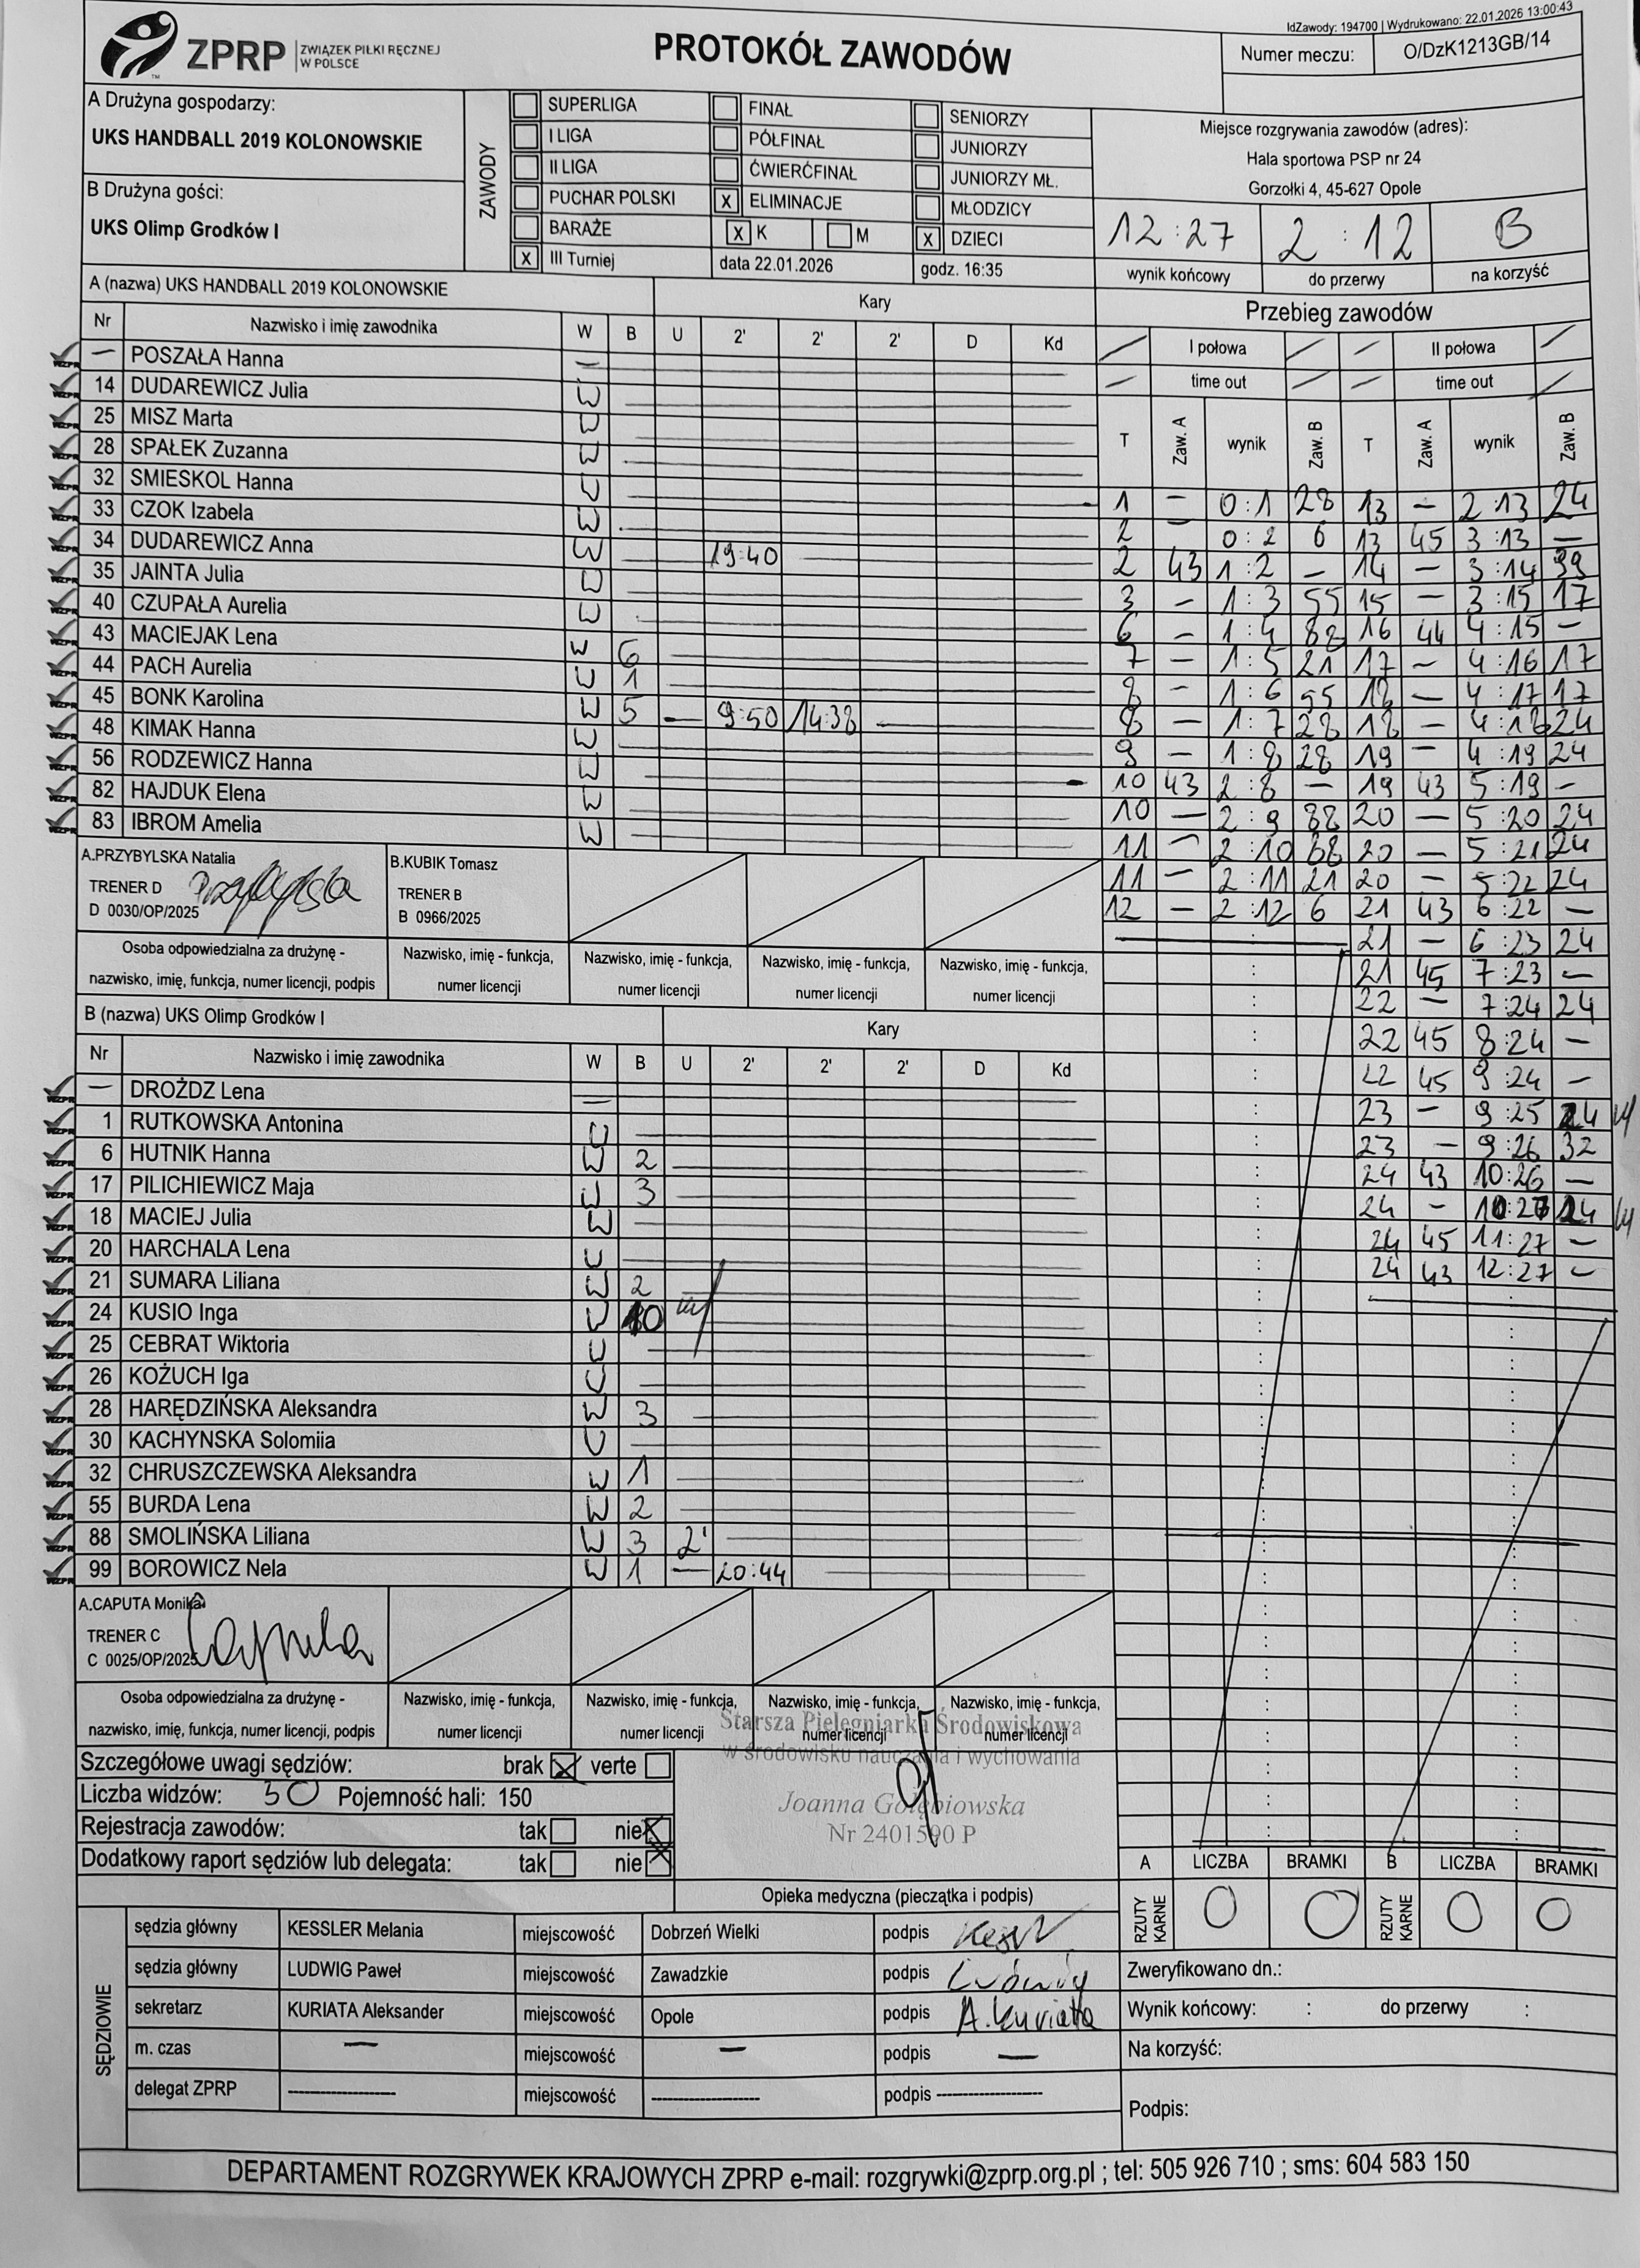 IdZawody: 194700 | Wydrukowano: 22.01.2026 13:00:43
ZPRP ZWIĄZEK PIŁKI RĘCZNEJ W POLSCE
PROTOKÓŁ ZAWODÓW
Numer meczu: O/DzK1213GB/14
A Drużyna gospodarzy:
UKS HANDBALL 2019 KOLONOWSKIE
B Drużyna gości:
UKS Olimp Grodków I
ZAWODY
SUPERLIGA FINAŁ SENIORZY
I LIGA PÓŁFINAŁ JUNIORZY
II LIGA ĆWIERĆFINAŁ JUNIORZY MŁ.
PUCHAR POLSKI X ELIMINACJE MŁODZICY
BARAŻE X K M X DZIECI
X III Turniej data 22.01.2026 godz. 16:35
Miejsce rozgrywania zawodów (adres):
Hala sportowa PSP nr 24
Gorzołki 4, 45-627 Opole
12:27 2:12 B
wynik końcowy do przerwy na korzyść
A (nazwa) UKS HANDBALL 2019 KOLONOWSKIE Kary
Nr Nazwisko i imię zawodnika W B U 2' 2' 2' D Kd
— POSZAŁA Hanna —
14 DUDAREWICZ Julia W
25 MISZ Marta W
28 SPAŁEK Zuzanna W
32 SMIESKOL Hanna W
33 CZOK Izabela W
34 DUDAREWICZ Anna W 19:40
35 JAINTA Julia W
40 CZUPAŁA Aurelia W
43 MACIEJAK Lena W 6
44 PACH Aurelia W 1
45 BONK Karolina W 5 — 9:50 14:38
48 KIMAK Hanna W
56 RODZEWICZ Hanna W
82 HAJDUK Elena W
83 IBROM Amelia W
A.PRZYBYLSKA Natalia
TRENER D
D 0030/OP/2025
B.KUBIK Tomasz
TRENER B
B 0966/2025
Osoba odpowiedzialna za drużynę - nazwisko, imię, funkcja, numer licencji, podpis
Nazwisko, imię - funkcja, numer licencji
Nazwisko, imię - funkcja, numer licencji
Nazwisko, imię - funkcja, numer licencji
Nazwisko, imię - funkcja, numer licencji
B (nazwa) UKS Olimp Grodków I Kary
Nr Nazwisko i imię zawodnika W B U 2' 2' 2' D Kd
— DROŻDZ Lena —
1 RUTKOWSKA Antonina W
6 HUTNIK Hanna W 2
17 PILICHIEWICZ Maja W 3
18 MACIEJ Julia W
20 HARCHALA Lena W
21 SUMARA Liliana W 2
24 KUSIO Inga W 10
25 CEBRAT Wiktoria W
26 KOŻUCH Iga W
28 HARĘDZIŃSKA Aleksandra W 3
30 KACHYNSKA Solomiia W
32 CHRUSZCZEWSKA Aleksandra W 1
55 BURDA Lena W 2
88 SMOLIŃSKA Liliana W 3 2'
99 BOROWICZ Nela W 1 — 20:44
A.CAPUTA Monika
TRENER C
C 0025/OP/2025
Osoba odpowiedzialna za drużynę - nazwisko, imię, funkcja, numer licencji, podpis
Nazwisko, imię - funkcja, numer licencji
Nazwisko, imię - funkcja, numer licencji
Nazwisko, imię - funkcja, numer licencji
Nazwisko, imię - funkcja, numer licencji
Przebieg zawodów
I połowa II połowa
time out time out
T Zaw. A wynik Zaw. B T Zaw. A wynik Zaw. B
1 — 0:1 28 13 — 2:13 24
2 — 0:2 6 13 45 3:13 —
2 43 1:2 — 14 — 3:14 99
3 — 1:3 55 15 — 3:15 17
6 — 1:4 88 16 44 4:15 —
7 — 1:5 21 17 — 4:16 17
8 — 1:6 55 18 — 4:17 17
8 — 1:7 28 18 — 4:18 24
9 — 1:8 28 19 — 4:19 24
10 43 2:8 — 19 43 5:19 —
10 — 2:9 88 20 — 5:20 24
11 — 2:10 88 20 — 5:21 24
11 — 2:11 21 20 — 5:22 24
12 — 2:12 6 21 43 6:22 —
21 — 6:23 24
21 45 7:23 —
22 — 7:24 24
22 45 8:24 —
22 45 9:24 —
23 — 9:25 24
23 — 9:26 32
24 43 10:26 —
24 — 10:27 24
24 45 11:27 —
24 43 12:27 —
Szczegółowe uwagi sędziów: brak X verte
Liczba widzów: 30 Pojemność hali: 150
Rejestracja zawodów: tak nie X
Dodatkowy raport sędziów lub delegata: tak nie X
Starsza Pielęgniarka Środowiskowa
w środowisku nauczania i wychowania
Joanna Gołębiowska
Nr 2401590 P
Opieka medyczna (pieczątka i podpis)
A LICZBA BRAMKI B LICZBA BRAMKI
RZUTY KARNE 0 0 RZUTY KARNE 0 0
SĘDZIOWIE
sędzia główny KESSLER Melania miejscowość Dobrzeń Wielki podpis
sędzia główny LUDWIG Paweł miejscowość Zawadzkie podpis
sekretarz KURIATA Aleksander miejscowość Opole podpis A.Kuriata
m. czas — miejscowość — podpis —
delegat ZPRP ---------- miejscowość ---------- podpis ----------
Zweryfikowano dn.:
Wynik końcowy: : do przerwy :
Na korzyść:
Podpis:
DEPARTAMENT ROZGRYWEK KRAJOWYCH ZPRP e-mail: rozgrywki@zprp.org.pl ; tel: 505 926 710 ; sms: 604 583 150